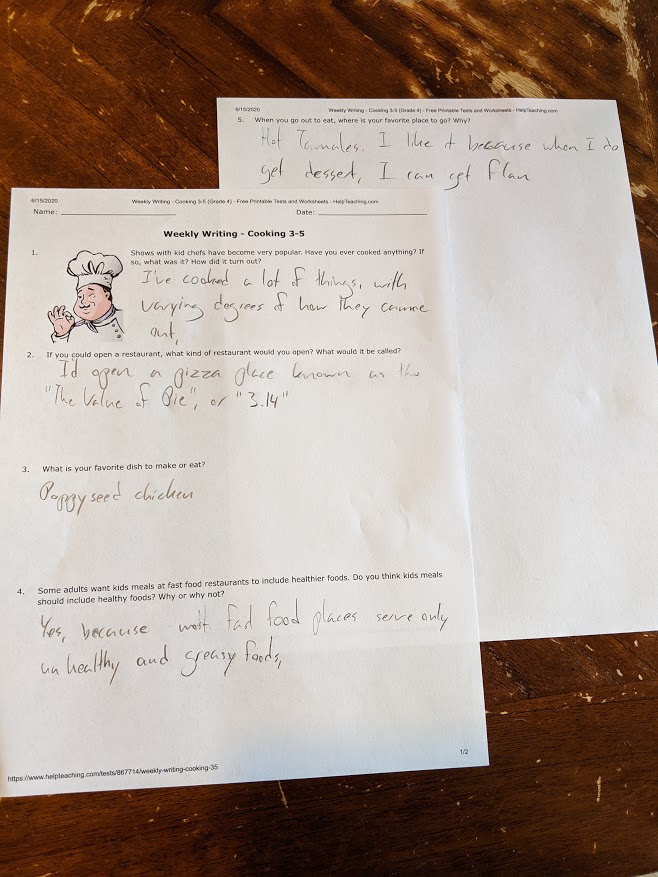 6/15/2020 Weekly Writing - Cooking 3-5 (Grade 4) - Free Printable Tests and Worksheets - HelpTeaching.com
Name: Date:
Weekly Writing - Cooking 3-5
1. Shows with kid chefs have become very popular. Have you ever cooked anything? If
so, what was it? How did it turn out?
I've cooked a lot of things, with
varying degrees of how they came
out,
2. If you could open a restaurant, what kind of restaurant would you open? What would it be called?
I'd open a pizza place known as the
"The Value of Pie", or "3.14"
3. What is your favorite dish to make or eat?
Poppyseed chicken
4. Some adults want kids meals at fast food restaurants to include healthier foods. Do you think kids meals
should include healthy foods? Why or why not?
Yes, because most fast food places serve only
unhealthy and greasy foods,
1/2
https://www.helpteaching.com/tests/867714/weekly-writing-cooking-35
6/15/2020 Weekly Writing - Cooking 3-5 (Grade 4) - Free Printable Tests and Worksheets - HelpTeaching.com
5. When you go out to eat, where is your favorite place to go? Why?
Hot Tamales. I like it because when I do
get dessert, I can get flan